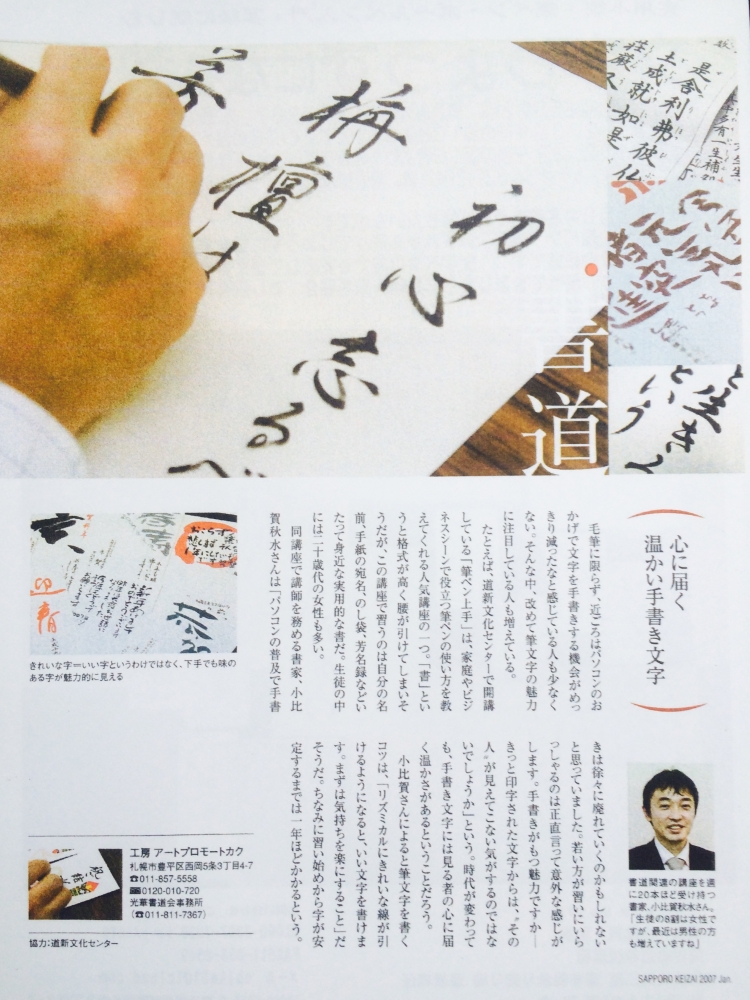 梅
檀は
初
心
忘るべ
是舎利弗彼仏
土成就如是
荘厳又
生き
という
書道
心に届く
温かい手書き文字
毛筆に限らず、近ごろはパソコンのお
かげで文字を手書きする機会がめっ
きり減ったなと感じている人も少なく
ない。そんな中、改めて筆文字の魅力
に注目している人も増えている。
たとえば、道新文化センターで開講
している「筆ペン上手」は、家庭やビジ
ネスシーンで役立つ筆ペンの使い方を教
えてくれる人気講座の一つ。「書」とい
うと格式が高く腰が引けてしまいそ
うだが、この講座で習うのは自分の名
前、手紙の宛名、のし袋、芳名録などとい
たって身近な実用的な書だ。生徒の中
には二十歳代の女性も多い。
同講座で講師を務める書家、小比
賀秋水さんは「パソコンの普及で手書
きは徐々に廃れていくのかもしれない
と思っていました。若い方が習いにいら
っしゃるのは正直言って意外な感じが
します。手書きがもつ魅力ですか―
きっと印字された文字からは、〝その
人〟が見えてこない気がするのではな
いでしょうか」という。時代が変わって
も、手書き文字には見る者の心に届
く温かさがあるということだろう。
小比賀さんによると筆文字を書く
コツは、「リズミカルにきれいな線が引
けるようになると、いい文字を書けま
す。まずは気持ちを楽にすること」だ
そうだ。ちなみに習い始めから字が安
定するまでは一年ほどかかるという。
迎春
きれいな字=いい字というわけではなく、下手でも味の
ある字が魅力的に見える
書道関連の講座を週
に20本ほど受け持つ
書家、小比賀秋水さん。
「生徒の8割は女性で
すが、最近は男性の方
も増えていますね」
工房 アートプロモートカク
札幌市豊平区西岡5条3丁目4-7
☎011-857-5558
0120-010-720
光華書道会事務所
(☎011-811-7367)
協力:道新文化センター
SAPPORO KEIZAI 2007 Jan.